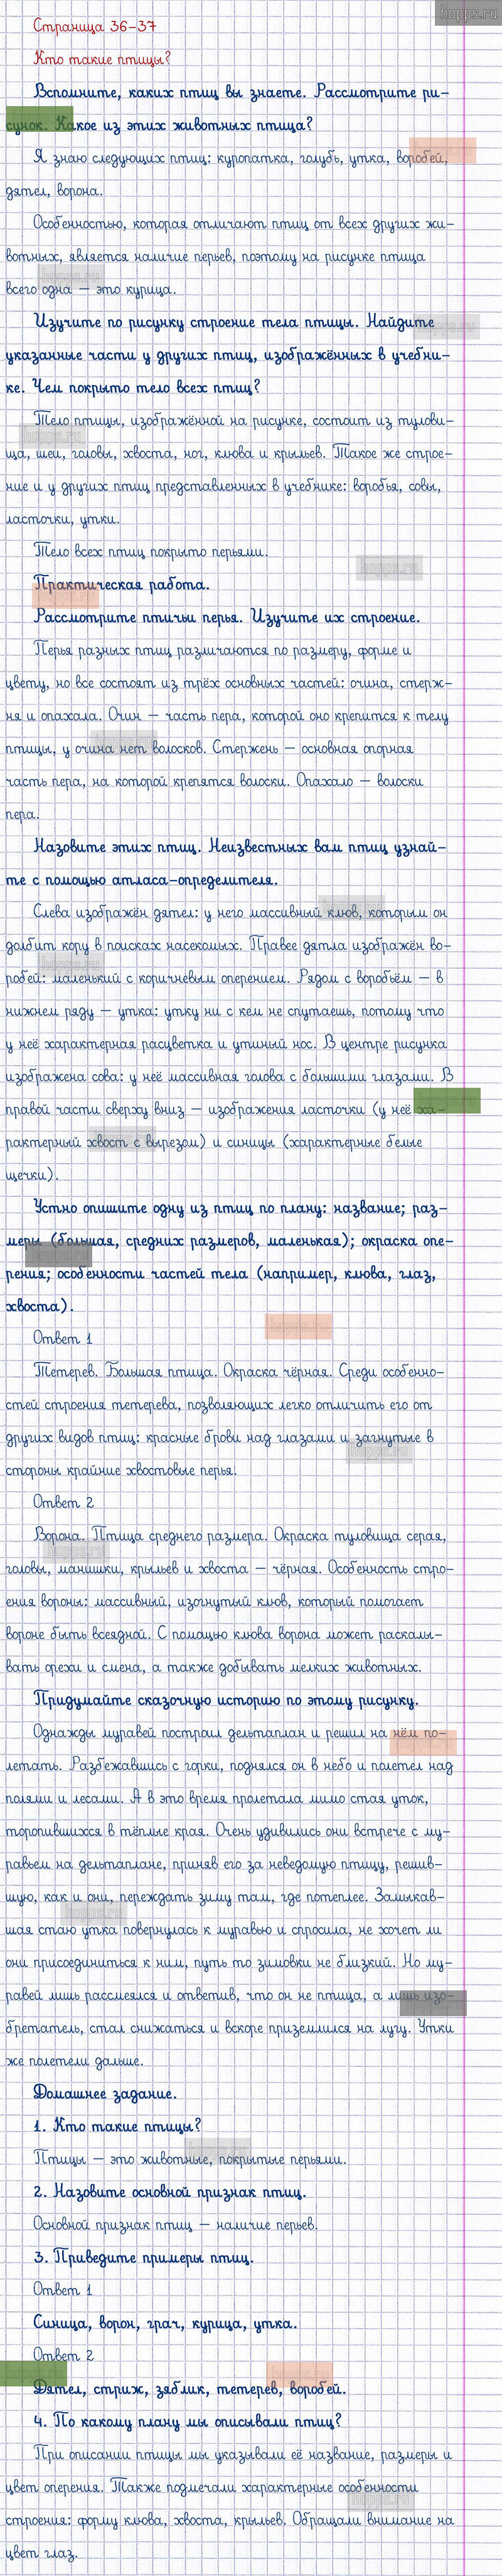 hopps.ru
Страница 36-37
Кто такие птицы?
Вспомните, каких птиц вы знаете. Рассмотрите ри-
сунок. Какое из этих животных птица?
Я знаю следующих птиц: куропатка, голубь, утка, воробей,
дятел, ворона.
Особенностью, которая отличают птиц от всех других жи-
вотных, является наличие перьев, поэтому на рисунке птица
всего одна – это курица.
Изучите по рисунку строение тела птицы. Найдите
указанные части у других птиц, изображённых в учебни-
ке. Чем покрыто тело всех птиц?
Тело птицы, изображённой на рисунке, состоит из тулови-
ща, шеи, головы, хвоста, ног, клюва и крыльев. Такое же строе-
ние и у других птиц представленных в учебнике: воробья, совы,
ласточки, утки.
Тело всех птиц покрыто перьями.
Практическая работа.
Рассмотрите птичьи перья. Изучите их строение.
Перья разных птиц различаются по размеру, форме и
цвету, но все состоят из трёх основных частей: очина, стерж-
ня и опахала. Очин – часть пера, которой оно крепится к телу
птицы, у очина нет волосков. Стержень – основная опорная
часть пера, на которой крепятся волоски. Опахало – волоски
пера.
Назовите этих птиц. Неизвестных вам птиц узнай-
те с помощью атласа-определителя.
Слева изображён дятел: у него массивный клюв, которым он
долбит кору в поисках насекомых. Правее дятла изображён во-
робей: маленький с коричневым оперением. Рядом с воробьём – в
нижнем ряду – утка: утку ни с кем не спутаешь, потому что
у неё характерная расцветка и утиный нос. В центре рисунка
изображена сова: у неё массивная голова с большими глазами. В
правой части сверху вниз – изображения ласточки (у неё ха-
рактерный хвост с вырезом) и синицы (характерные белые
щечки).
Устно опишите одну из птиц по плану: название; раз-
меры (большая, средних размеров, маленькая); окраска опе-
рения; особенности частей тела (например, клюва, глаз,
хвоста).
Ответ 1
Тетерев. Большая птица. Окраска чёрная. Среди особенно-
стей строения тетерева, позволяющих легко отличить его от
других видов птиц: красные брови над глазами и загнутые в
стороны крайние хвостовые перья.
Ответ 2
Ворона. Птица среднего размера. Окраска туловища серая,
головы, манишки, крыльев и хвоста – чёрная. Особенность стро-
ения вороны: массивный, изогнутый клюв, который помогает
вороне быть всеядной. С помощью клюва ворона может раскалы-
вать орехи и смена, а также добывать мелких животных.
Придумайте сказочную историю по этому рисунку.
Однажды муравей построил дельтаплан и решил на нём по-
летать. Разбежавшись с горки, поднялся он в небо и полетел над
полями и лесами. А в это время пролетала мимо стая уток,
торопившихся в тёплые края. Очень удивились они встрече с му-
равьем на дельтаплане, приняв его за неведомую птицу, решив-
шую, как и они, переждать зиму там, где потеплее. Замыкав-
шая стаю утка повернулась к муравью и спросила, не хочет ли
они присоединиться к ним, путь то зимовки не близкий. Но му-
равей лишь рассмеялся и ответив, что он не птица, а лишь изо-
бретатель, стал снижаться и вскоре приземлился на лугу. Утки
же полетели дальше.
Домашнее задание.
1. Кто такие птицы?
Птицы – это животные, покрытые перьями.
2. Назовите основной признак птиц.
Основной признак птиц – наличие перьев.
3. Приведите примеры птиц.
Ответ 1
Синица, ворон, грач, курица, утка.
Ответ 2
Дятел, стриж, зяблик, тетерев, воробей.
4. По какому плану мы описывали птиц?
При описании птицы мы указывали её название, размеры и
цвет оперения. Также подмечали характерные особенности
строения: форму клюва, хвоста, крыльев. Обращали внимание на
цвет глаз.